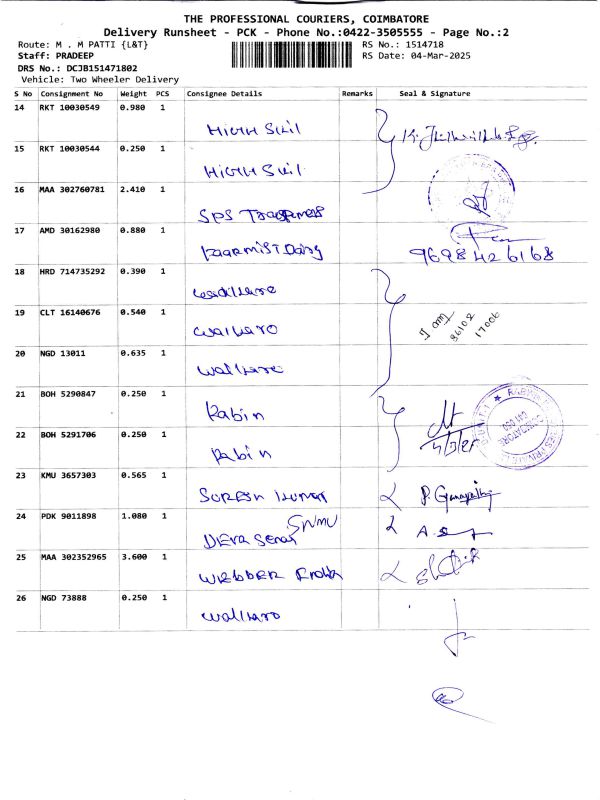 THE PROFESSIONAL COURIERS, COIMBATORE
Delivery Runsheet - PCK - Phone No.:0422-3505555 - Page No.:2
Route: M . M PATTI {L&T} RS No.: 1514718
Staff: PRADEEP RS Date: 04-Mar-2025
DRS No.: DCJB151471802
Vehicle: Two Wheeler Delivery
S No Consignment No Weight PCS Consignee Details Remarks Seal & Signature
14 RKT 10030549 0.980 1
HIGH Skil
15 RKT 10030544 0.250 1
HIGH Skil
16 MAA 302760781 2.410 1
SPS
17 AMD 30162980 0.880 1
9698426168
18 HRD 714735292 0.390 1
19 CLT 16140676 0.540 1
walkaro
36102
17006
20 NGD 13011 0.635 1
walkaro
21 BOH 5290847 0.250 1
Rabin
22 BOH 5291706 0.250 1
Rabin
23 KMU 3657303 0.565 1
SURESH KUMAR
24 PDK 9011898 1.080 1
25 MAA 302352965 3.600 1
26 NGD 73888 0.250 1
walkaro